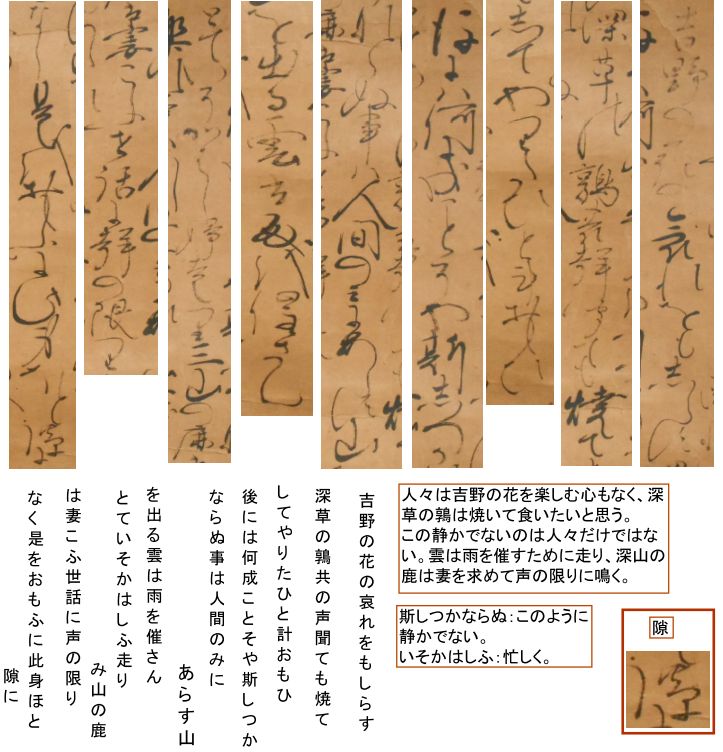 吉野の花の哀れをもしらす
深草の鶉共の声聞ても焼て
してやりたひと計おもひ
後には何成ことそや斯しつか
ならぬ事は人間のみに
あらす山
を出る雲は雨を催さん
とていそかはしふ走り
み山の鹿
は妻こふ世話に声の限り
なく是をおもふに此身ほと
隙に
人々は吉野の花を楽しむ心もなく、深
草の鶉は焼いて食いたいと思う。
この静かでないのは人々だけではな
い。雲は雨を催すために走り、深山の
鹿は妻を求めて声の限りに鳴く。
斯しつかならぬ：このように
静かでない。
いそかはしふ：忙しく。
隙